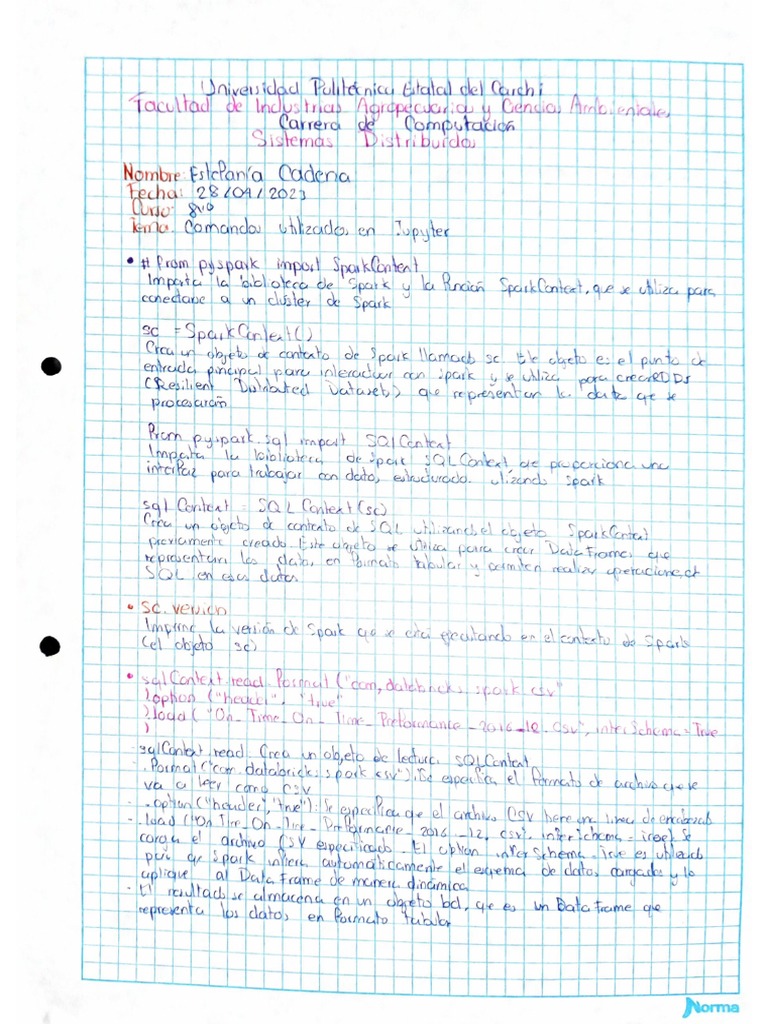 Universidad Politécnica Estatal del Carchi
Facultad de Industrias Agropecuaria y Ciencias Ambientales
Carrera de Computación
Sistemas Distribuidos
Nombre: Estefanía Cadena
Fecha: 28/04/2023
Curso: 8vo
Tema: Comandos utilizados en Jupyter
• # From pyspark import SparkContext
Importa la biblioteca de Spark y la función SparkContext, que se utiliza para
conectarse a un cluster de Spark
sc = SparkContext()
Crea un objeto de contexto de Spark llamado sc. Este objeto es el punto de
entrada principal para interactuar con spark y se utiliza para crear RDDs
(Resilient Distributed Datasets) que representan los datos que se
procesarán
From pyspark.sql import SQLContext
Importa la biblioteca de Spark SQLContext que proporciona una
interfaz para trabajar con datos estructurados utlizando spark
sql Context = SQL Context(sc)
Crea un objeto de contexto de SQL utilizando el objeto SparkContext
previamente creado. Este objeto se utiliza para crear DataFrames que
representan los datos en formato tabular y permiten realizar operaciones de
SQL en esos datos
• sc.version
Imprime la versión de Spark que se está ejecutando en el contexto de Spark
(el objeto sc)
• sqlContext.read.Format("com.databricks.spark.csv"
).option ("header", "true"
).load ("On_Time_On_Time_Preformance_2016_12.csv", interSchema=True
)
- sqlContext.read. Crea un objeto de lectura SQLContext
- .Format("com.databricks.spark.csv"). Se especifica el formato de archivo que se
va a leer como CSV
- .option("header","true"): Se especifica que el archivo CSV tiene una linea de encabezado
- .load ("On Time_On_Time_Preformance_2016_12.csv", interschema=true). Se
carga el archivo CSV especificado. El option interSchema=true es utilizado
para que Spark infiera automáticamente el esquema de datos cargados y lo
aplique al DataFrame de manera dinámica
- El resultado se almacena en un objeto bd, que es un DataFrame que
representa los datos en formato tabular
Norma